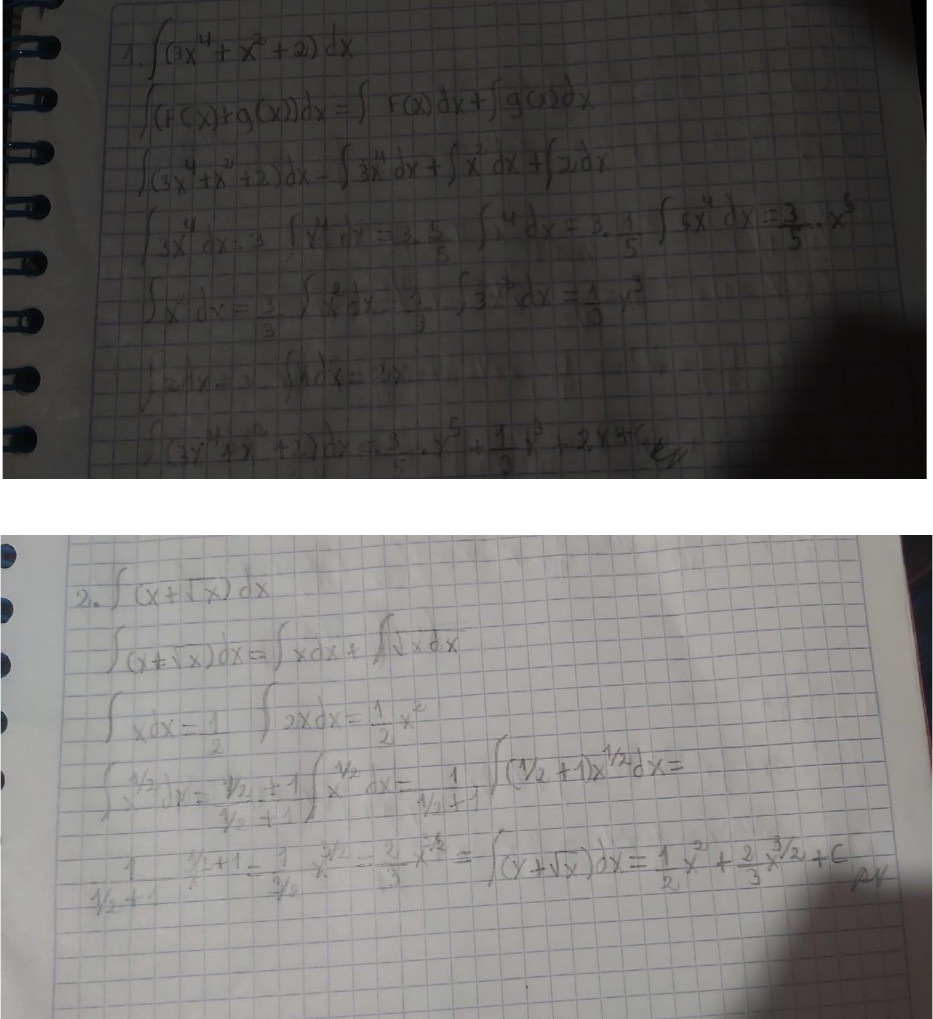 1. ∫(3x⁴ + x² + 2) dx
∫(F(x) + g(x))dx = ∫ F(x) dx + ∫ g(x) dx
∫(3x⁴ + x² + 2) dx = ∫ 3x⁴ dx + ∫ x² dx + ∫ 2 dx
∫ 3x⁴ dx = 3 ∫ x⁴ dx = 3 . 5/5 ∫ x⁴ dx = 3 . 1/5 ∫ 5x⁴ dx = 3/5 . x⁵
∫ x² dx = 3/3 ∫ x² dx = 1/3 ∫ 3x² dx = 1/3 x³
∫ 2dx = 2 ∫ dx = 2x
∫ (3x⁴ + x² + 2) dx = 3/5 . x⁵ + 1/3 x³ + 2x + C
2. ∫ (x + √x) dx
∫ (x + √x) dx = ∫ x dx + ∫ √x dx
∫ x dx = 1/2 ∫ 2x dx = 1/2 x²
∫ x^1/2 dx = 1/2 + 1 / 1/2 + 1 ∫ x^1/2 dx = 1 / 1/2 + 1 . ∫ (1/2 + 1) x^1/2 dx =
1 / 1/2 + 1 x^1/2 + 1 = 1 / 3/2 x^3/2 = 2/3 x^3/2 = ∫ (x + √x) dx = 1/2 x² + 2/3 x^3/2 + C